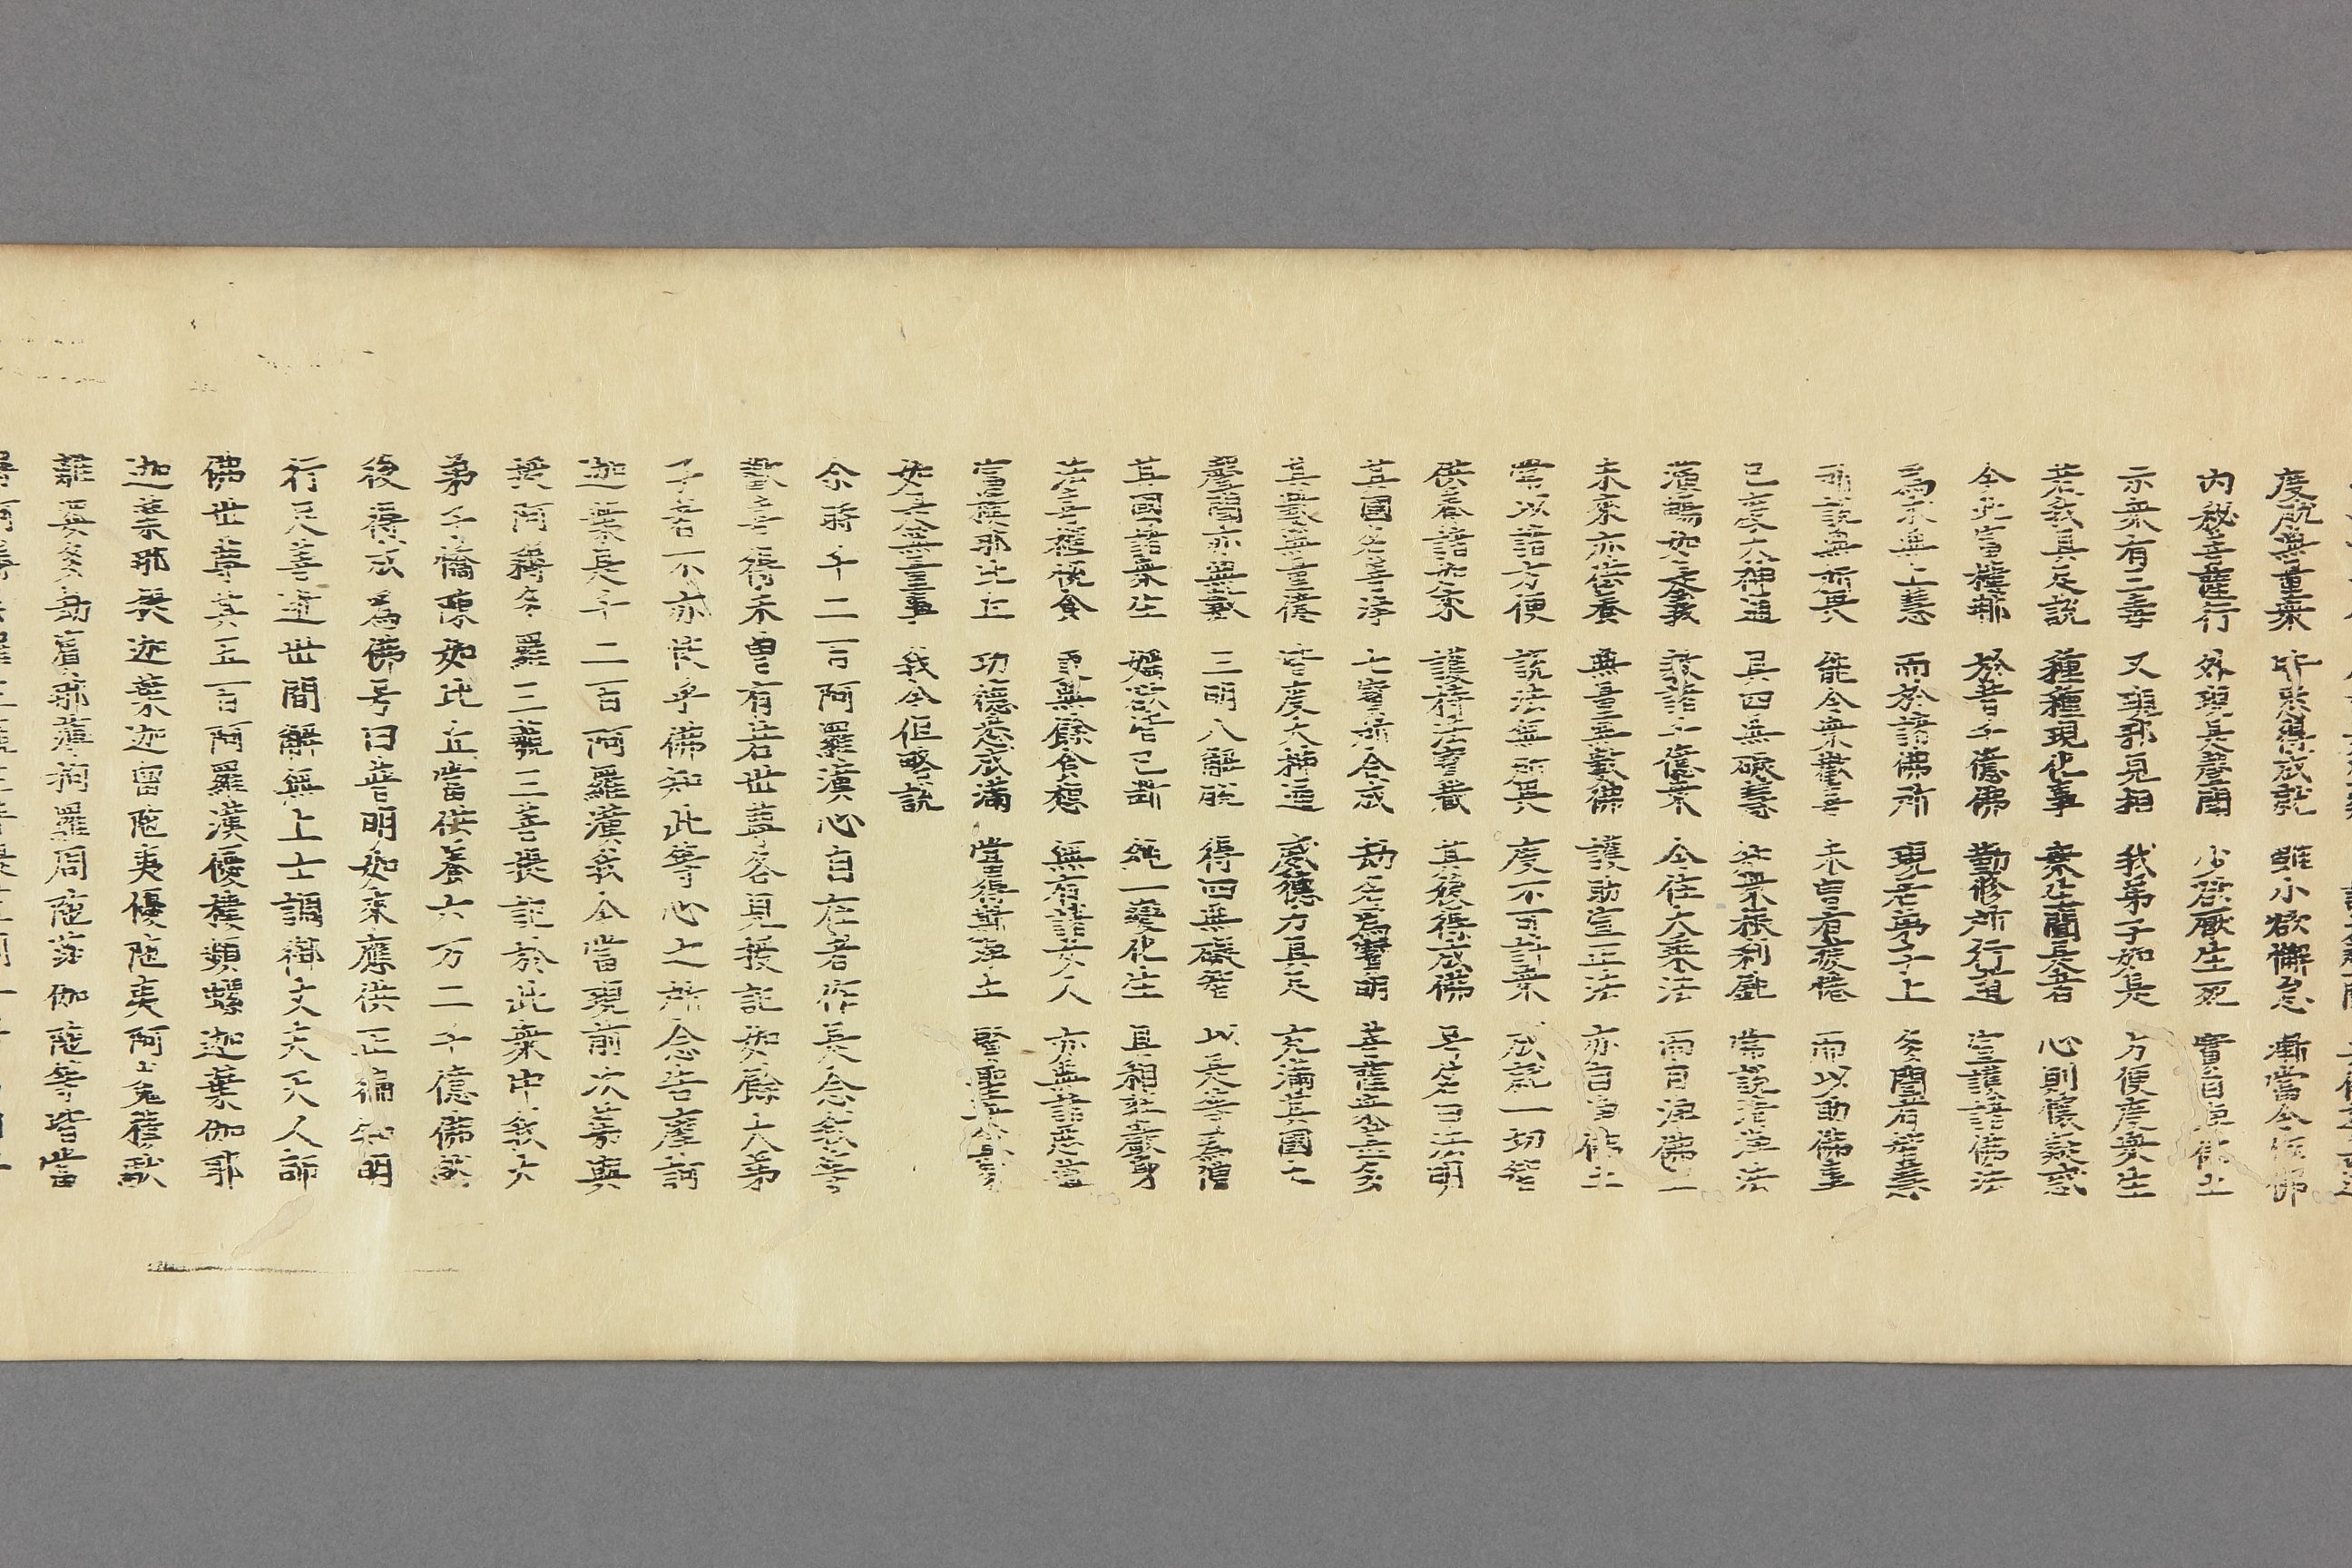 度脫無量衆 皆悉得成就 雖小欲懈怠 漸當令作佛
内秘菩薩行 外現是聲聞 少欲厭生死 實自淨佛土
示衆有三毒 又現邪見相 我弟子如是 方便度衆生
若我具足說 種種現化事 衆生聞是者 心則懷疑惑
今此富樓那 於昔千億佛 勤修所行道 宣護諸佛法
爲求無上慧 而於諸佛所 現居弟子上 多聞有智慧
所說無所畏 能令衆歡喜 未曾有疲惓 而以助佛事
已度大神通 具四無礙慧 知衆根利鈍 常說清淨法
演暢如是義 教諸千億衆 令住大乘法 而自淨佛土
未來亦供養 無量無數佛 護助宣正法 亦自淨佛土
常以諸方便 說法無所畏 度不可計衆 成就一切智
供養諸如來 護持法寶藏 其後得成佛 号名曰法明
其國名善淨 七寶所合成 劫名爲寶明 菩薩衆甚多
其數無量億 皆度大神通 威德力具足 充滿其國土
聲聞亦無數 三明八解脫 得四無礙智 以是等爲僧
其國諸衆生 婬欲皆已斷 純一變化生 具相莊嚴身
法喜禪悅食 更無餘食想 無有諸女人 亦無諸惡道
富樓那比丘 功德悉成滿 當得斯淨土 賢聖衆甚多
如是無量事 我今但略說
尒時千二百阿羅漢心自在者作是念我等
歡喜得未曾有若世尊各見授記如餘大弟
子者不亦快乎佛知此等心之所念告摩訶
迦葉是千二百阿羅漢我今當現前次第與
授阿耨多羅三藐三菩提記於此衆中我大
弟子憍陳如比丘當供養六万二千億佛然
後得成爲佛号曰普明如來應供正徧知明
行足善逝世間解無上士調御丈夫天人師
佛世尊其五百阿羅漢優樓頻螺迦葉伽耶
迦葉那提迦葉迦留陁夷優陁夷阿㝹樓馱
離婆多劫賓那薄拘羅周陁莎伽陁等皆當